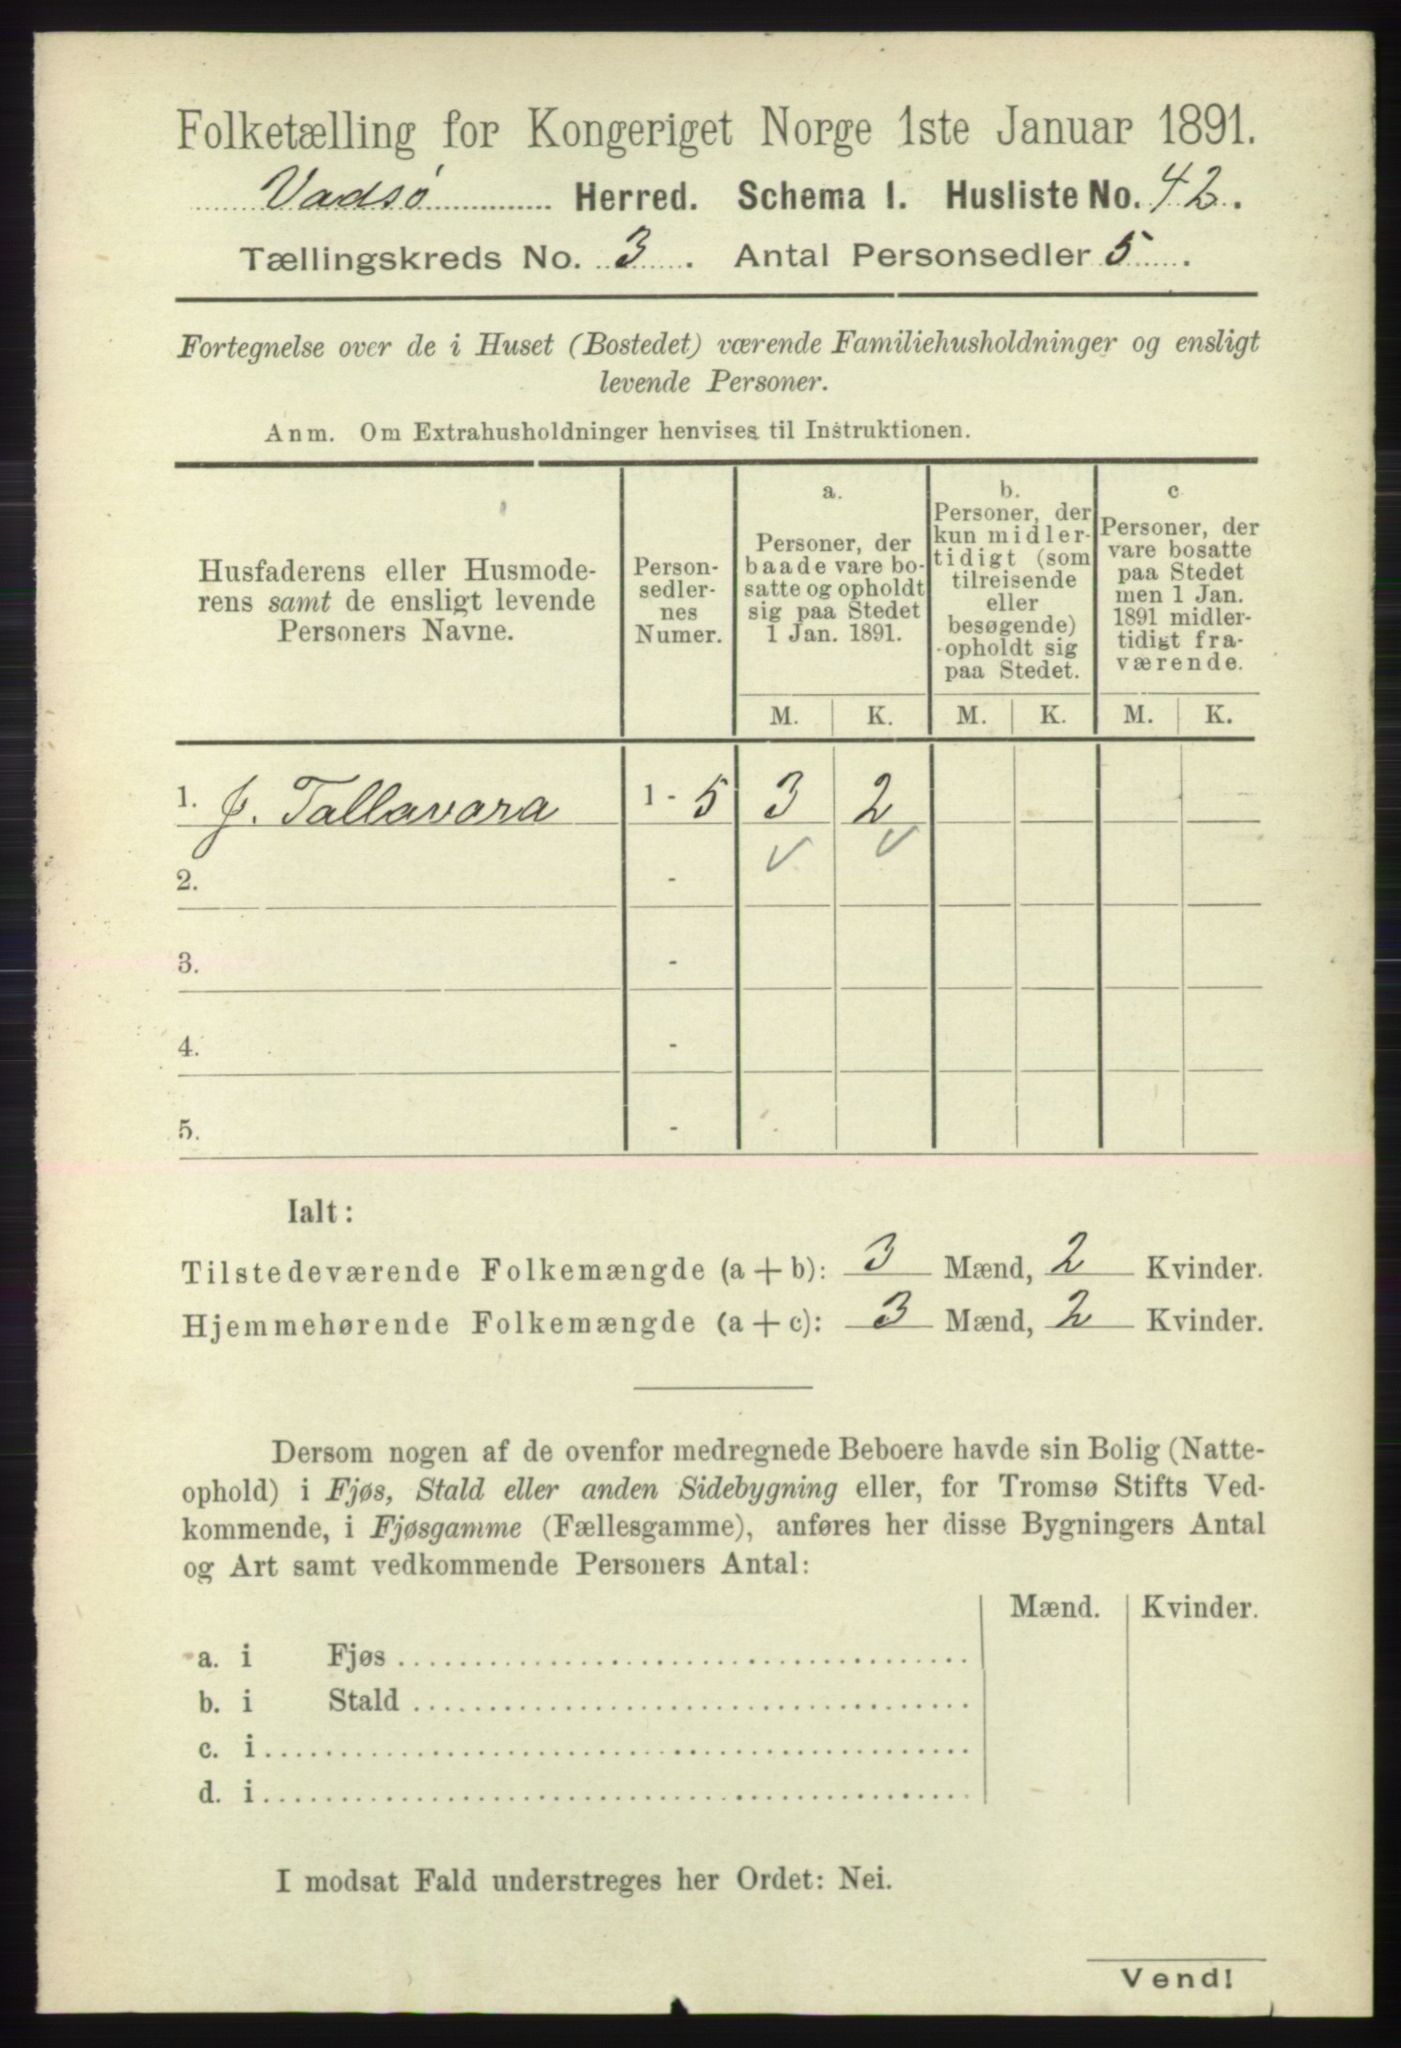 Folketælling for Kongeriget Norge 1ste Januar 1891.
Vadsø Herred. Schema 1. Husliste No. 42.
Tællingskreds No. 3. Antal Personsedler 5.
Fortegnelse over de i Huset (Bostedet) værende Familiehusholdninger og ensligt
levende Personer.
Anm. Om Extrahusholdninger henvises til Instruktionen.
Husfaderens eller Husmode-
rens samt de ensligt levende
Personers Navne.
Person-
sedler-
nes
Numer.
a.
Personer, der
baade vare bo-
satte og opholdt
sig paa Stedet
1 Jan. 1891.
b.
Personer, der
kun midler-
tidigt (som
tilreisende
eller
besøgende)
opholdt sig
paa Stedet.
c
Personer, der
vare bosatte
paa Stedet
men 1 Jan.
1891 midler-
tidigt fra-
værende.
M. K. M. K. M. K.
1. J. Tallavara 1 - 5 3 2
2. -
3. -
4. -
5. -
Ialt:
Tilstedeværende Folkemængde (a + b): 3 Mænd, 2 Kvinder.
Hjemmehørende Folkemængde (a + c): 3 Mænd, 2 Kvinder.
Dersom nogen af de ovenfor medregnede Beboere havde sin Bolig (Natte-
ophold) i Fjøs, Stald eller anden Sidebygning eller, for Tromsø Stifts Ved-
kommende, i Fjøsgamme (Fællesgamme), anføres her disse Bygningers Antal
og Art samt vedkommende Personers Antal:
Mænd. Kvinder.
a. i Fjøs
b. i Stald
c. i
d. i
I modsat Fald understreges her Ordet: Nei.
Vend!